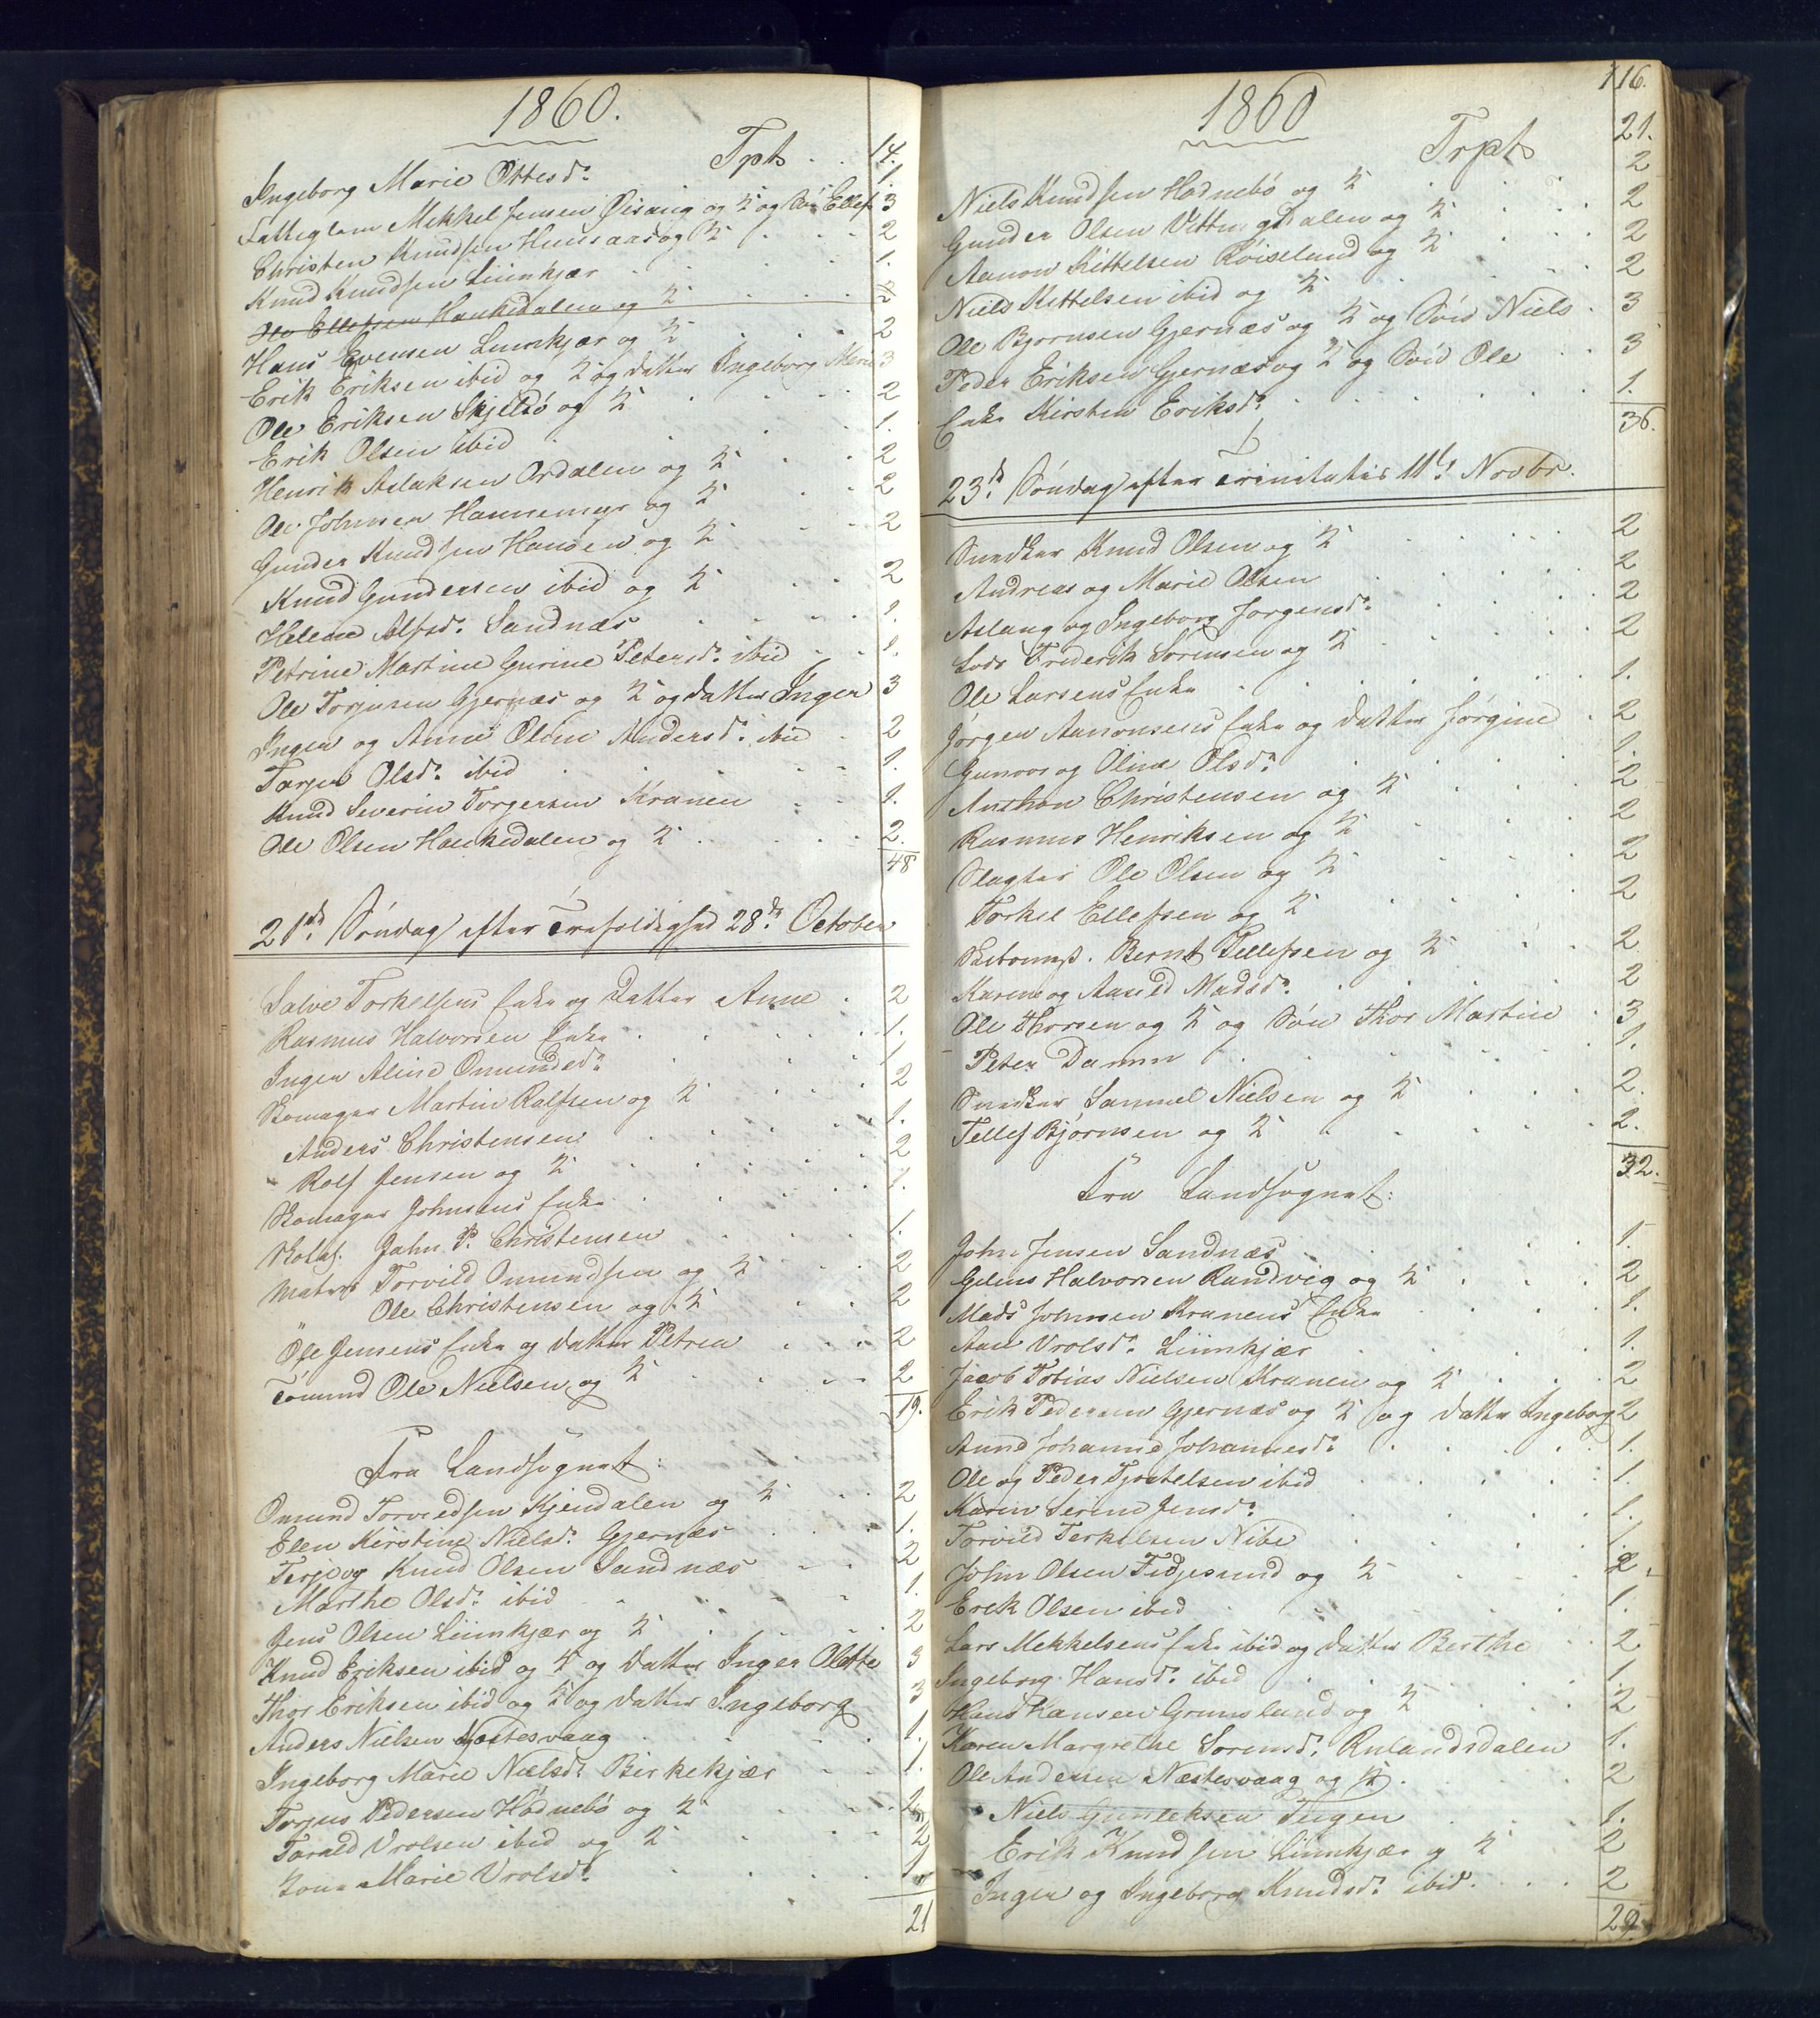 1860.
Tpt . . 14.
Ingeborg Marie Ottesdr. 1
Fattiglem Mekkel Jensen Øisang og K og Sön Ellef 3
Christen Knudsen Huusaas og K . . . 2
Knud Knudsen Liimkjær . . . 1.
Ole Ellefsen Haukedalen og K . . . 2
Hans Evensen Liimkjær og K . . . 2
Erik Eriksen ibid og K og datter Ingeborg Marie 3
Ole Eriksen Skjelsö og K . . . 2
Erik Olsen ibid . . . 1.
Henrik Aslaksen Ordalen og K . . 2
Ole Johnsen Hannemyr og K . . 2
Gunder Knudsen Hansen og K . . 2
Knud Gundersen ibid og K . . 2
Helene Alfsdr. Sandnæs . . . 1.
Petrine Martine Gurine Petersdr. ibid . . 1.
Ole Torjusen Gjernæs og K og datter Inger 3
Inger og Anne Oline Andersdr. ibid . 2
Torjer Olsdr. ibid . . . 1.
Knud Severin Torgersen Kranen . . 1.
Ole Olsen Haukedalen og K . . . 2.
48
21de Söndag efter Trefoldighed 28de October
Salve Torkelsens Enke og Datter Anne . 2
Rasmus Halvorsen Enke . . . 1.
Inger Aline Omundsdr. . . . 1
Skomager Martin Rolfsen og K . . . 2
Anders Christensen . . . 1.
Rolf Jensen og K . . . 2
Skomager Johnsens Enke . . . 1.
Skolel. Jahn P. Christensen . . . 1.
Matros Torvild Omundsen og K . . . 2
" Ole Christensen og K . . 2
Ole Jensens Enke og datter Petrea . . . 2
Tömmd Ole Nielsen og K . . . 2
19.
Fra Landsognet:
Omund Torvildsen Kjendalen og K . . 2
Elen Kirstine Nielsdr. Gjernæs . . . 1.
Terje og Knud Olsen Sandnæs . . 2
Marthe Olsdr. ibid . . . 1.
Jens Olsen Liimkjær og K . . . 2
Knud Eriksen ibid og K og datter Inger Olette 3
Thor Eriksen ibid og K og datter Ingeborg 3
Anders Nielsen Næstesvaag . . . 1.
Ingeborg Marie Nielsdr. Birkekjær . . 1.
Torjus Pedersen Hödnebö og K . . . 2
Tarald Vrolsen ibid og K . . . 2
Marie Vrolsdr. . . . 1
21
116.
1860
Trpt 21.
Niels Knudsen Hödnebö og K . . . 2
Gunder Olsen Vittingsdalen og K . . . 2
Aanon Kittelsen Röiselund og K . . . 2
Niels Kittelsen ibid og K . . . 2
Ole Bjornsen Gjernæs og K og Sön Niels . 3
Peder Eriksen Gjernæs og K og Sön Ole . . 3
Enke Kirsten Eriksdr. . . . 1.
36.
23de Söndag efter Trinitatis 11te Novbr.
Snedker Knud Olsen og K . . . 2
Andreas og Marie Olsen . . . 2
Aslaug og Ingeborg Jorgensdr. . . . 2
Lods Frederik Sörensen og K . . . 2
Ole Larsens Enke . . . 1.
Jörgen Aanonsens Enke og datter Jörgine . 2
Gunvor og Oline Olsdr. . . . 1.
Anthon Christensen og K . . . 2
Rasmus Henriksen og K . . . 2
Slagter Ole Olsen og K . . . 2
Torkel Ellefsen og K . . . 2
Skibtmd. Bernt Tellefsen og K . . 2
Karen og Aasild Madsdr. . . . 2
Ole Thorsen og K og Sön Thor Martin . 3
Peter Damm . . . 1.
Snedker Samuel Nielsen og K . . . 2.
Tellef Björnsen og K . . . 2.
32.
Fra Landsognet:
John Jensen Sandnæs . . . 1.
Gelius Halvorsen Randvig og K . . . 2
Mads Johnsen Kranens Enke . . . 1.
Aase Vrolsdr. Liimkjær . . . 1.
Jacob Tobias Nielsen Kranen og K . . . 2
Erik Pedersen Gjernæs og K og datter Ingeborg 2
Anne Johanne Johannesdr. . . . 1.
Ole og Peder Tjostelsen ibid . . . 1.
Karen Serine Jensdr. . . . 1.
Torvild Terkelsen Nibe . . . 1.
John Olsen Fidjesund og K . . . 2.
Erik Olsen ibid . . . 1.
Lars Mekkelsens Enke ibid og datter Berthe . . 2
Ingeborg Hansdr. ibid . . . 1.
Hans Hansen Grumslund og K . . . 2
Karen Margrethe Sörensdr. Rulandsdalen 1.
Ole Andersen Næstesvaag og K . . . 2
Niels Gunleksen Tugen . . . 1.
Erik Knudsen Liimkjær og K . . 2
Inger og Ingeborg Knudsdr. ibid . . . 2
29.